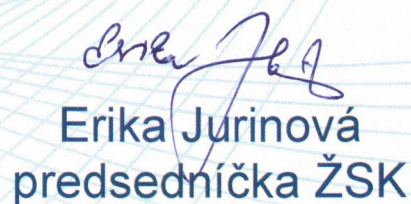 Erika Jurinová
predsedníčka ŽSK